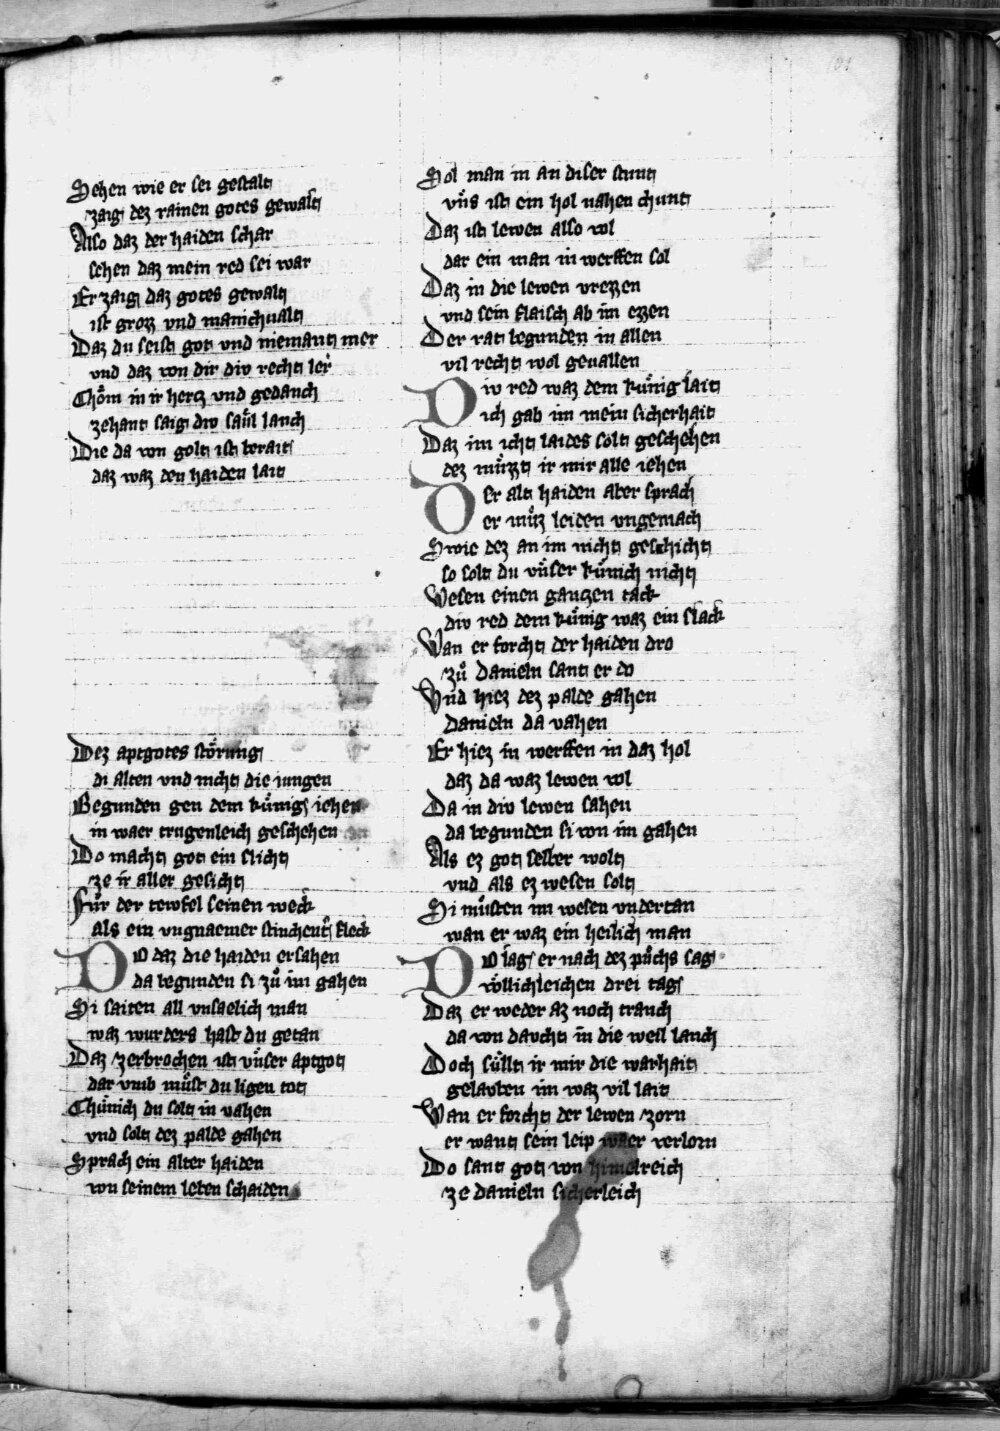 101
Sehen wie er sei gestalt
zaig dez rainen gotes gewalt
Also daz der haiden schar
sehen daz mein red sei war
Er zaig daz gotes gewalt
ist grozz vnd manichualt
Daz du seist got vnd niemant mer
vnd daz von dir div recht ler
Chöm in ir hertz vnd gedanch
zehant saig div sa̋ul lanch
Die da von golt ist berait
daz waz den haiden lait
Dez aptgotes störung
di alten vnd nicht die iungen
Begunden gen dem künig iehen
in waer trugenleich geschehen
Do macht got ein slicht
ze ir aller gesicht
Für der tewfel seinen weck
als ein vngnaemer stinchent fleck
Do daz die haiden ersahen
da begunden si zů im gahen
Si saiten all vnsaelich man
waz wurders hast du getan
Daz zerbrochen ist vnser aptgot
dar vmb můst du ligen tot
Chünich du solt in vahen
vnd solt dez palde gahen
Sprach ein alter haiden
von seinem leben schaiden
Sol man in an diser stunt
vns ist ein hol nahen chunt
Daz ist lewen also vol
dar ein man in werffen sol
Daz in die lewen vrezzen
vnd sein flaisch ab im ezzen
Der rat begunden in allen
vil recht wol geuallen
Div red waz dem künig lait
ich gab im mein sicherhait
Daz im icht laides solt geschehen
dez müzzt ir mir alle iehen
Der alt haiden aber sprach
er můz leiden vngemach
Swie dez an im nicht geschicht
so solt du vnser künich nicht
Wesen einen gantzen tack
div red dem künig waz ein slack
Wan er forcht der haiden dro
zů danieln sant er do
Vnd hiez dez palde gahen
danieln da vahen
Er hiez in werffen in daz hol
daz da waz lewen vol
Da in div lewen sahen
da begunden si von im gahen
Als ez got selber wolt
vnd als ez wesen solt
Si můsten im wesen vndertan
wan er waz ein heilich man
Do lag er nach dez půchs sag
völlichleichen drei tag
Daz er weder az noch tranch
da von daucht in die weil lanch
Doch süllt ir mir die warhait
gelauben im waz vil lait
Wan er forcht der lewen zorn
er want sein leip waer verlorn
Do sant got von himelreich
ze danieln sicherleich